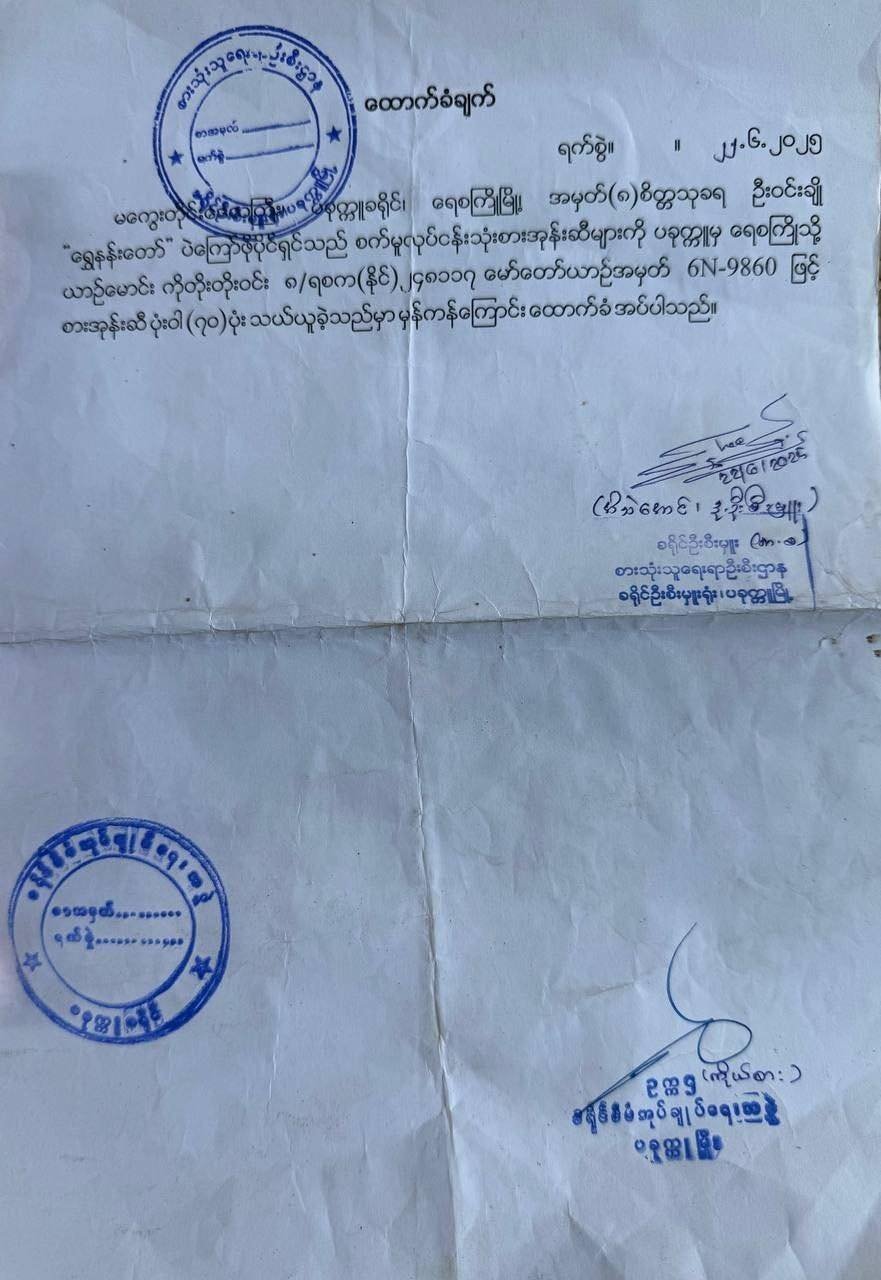 စားသုံးသူရေးရာဦးစီးဌာန
စာအမှတ်
ရက်စွဲ
ထောက်ခံချက်
ရက်စွဲ။ ။ ၂၂.၆.၂၀၂၅
မကွေးတိုင်းဒေသကြီး၊ ပခုက္ကူခရိုင်၊ ရေစကြိုမြို့၊ အမှတ်(၈)စိတ္တသုခရ ဦးဝင်းချို
“ရွှေနန်းတော်” ပဲကြော်ဖိုပိုင်ရှင်သည် စက်မှုလုပ်ငန်းသုံးစားအုန်းဆီများကို ပခုက္ကူမှ ရေစကြိုသို့
ယာဉ်မောင်း ကိုတိုးတိုးဝင်း ၈/ရစက(နိုင်)၂၄၈၁၁၇ မော်တော်ယာဉ်အမှတ် 6N-9860 ဖြင့်
စားအုန်းဆီ ပုံးဝါ(၇၀)ပုံး သယ်ယူခဲ့သည်မှာ မှန်ကန်ကြောင်း ထောက်ခံ အပ်ပါသည်။
22/6/2025
ခရိုင်ဦးစီးမှူး
စားသုံးသူရေးရာဦးစီးဌာန
ခရိုင်ဦးစီးမှူးရုံး၊ ပခုက္ကူမြို့
ခရိုင်စီမံအုပ်ချုပ်ရေးအဖွဲ့
စာအမှတ်
ရက်စွဲ
ပခုက္ကူခရိုင်
ဥက္ကဋ္ဌ (ကိုယ်စား)
ခရိုင်စီမံအုပ်ချုပ်ရေးအဖွဲ့
ပခုက္ကူမြို့